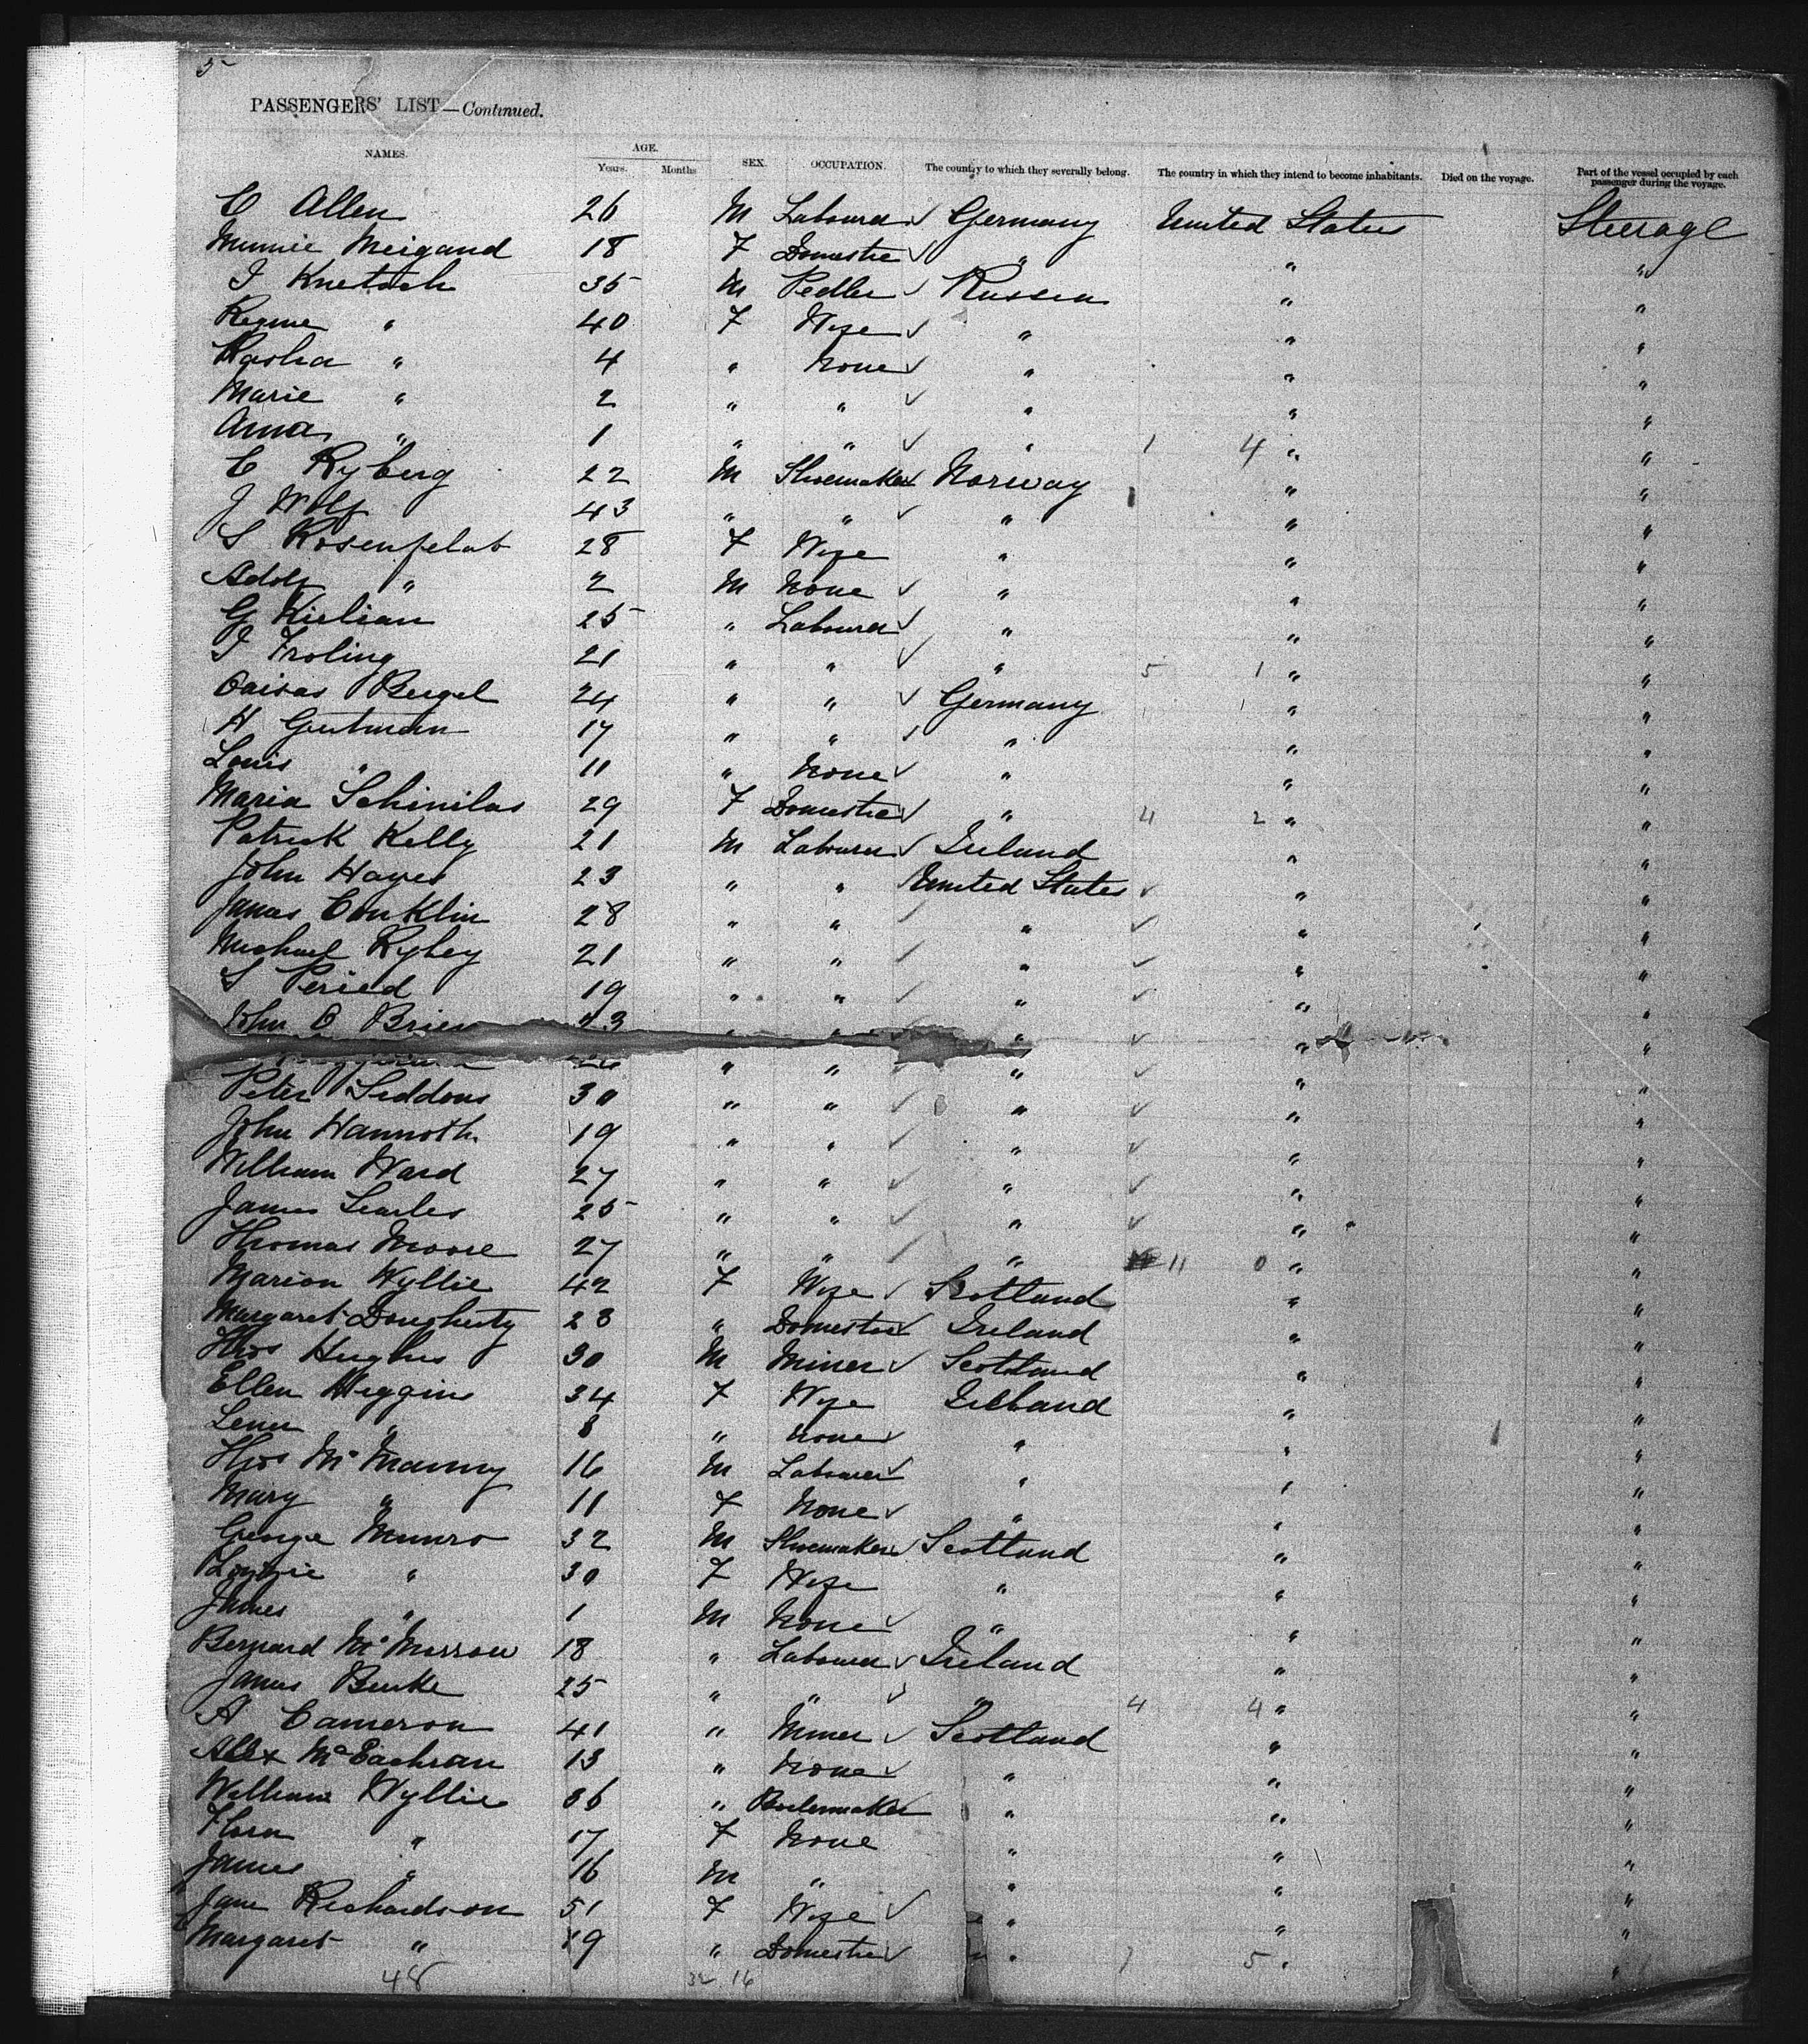 5
PASSENGERS' LIST—Continued.
NAMES. AGE. Years. Months SEX. OCCUPATION. The country to which they severally belong. The country in which they intend to become inhabitants. Died on the voyage. Part of the vessel occupied by each passenger during the voyage.
C Allen 26 M Labourer ✓ Germany United States Steerage
Minnie Meigand 18 F Domestic ✓ " " "
I Knetsch 35 M Pedler ✓ Russia " "
Regine " 40 F Wife ✓ " " "
Rasha " 4 " None ✓ " " "
Marie " 2 " " ✓ " " "
Anna " 1 " " ✓ " 1 4 " "
C Ryberg 22 M Shoemaker ✓ Norway " "
J Wolf 43 " " ✓ " " "
S Rosenfelat 28 F Wife " " "
Adolf " 2 M None ✓ " " "
G Kielian 25 " Labourer ✓ " " "
I Froling 21 " " ✓ " 5 1 " "
Bergel 24 " " ✓ Germany " "
H Gutman 17 " " ✓ " " "
Louis " 11 " None ✓ " " "
Maria Schinilas 29 F Domestic ✓ " 4 2 " "
Patrick Kelly 21 M Labourer ✓ Ireland " "
John Hayes 23 " " United States ✓ " "
James Conklin 28 " " ✓ " ✓ " "
Michael Ryley 21 " " ✓ " ✓ " "
S Peried 19 " " ✓ " ✓ " "
John O Brien 23 " " " ✓ " "
" " ✓ " ✓ " "
Peter Seddons 30 " " ✓ " ✓ " "
John Wannoth 19 " " ✓ " ✓ " "
William Ward 27 " " ✓ " ✓ " "
James Searles 25 " " ✓ " ✓ " "
Thomas Moore 27 " " ✓ " 11 0 " "
Marion Wyllie 42 F Wife ✓ Scotland " "
Margaret Dougherty 28 " Domestic ✓ Ireland " "
Thos Hughes 30 M Miner ✓ Scotland " "
Ellen Higgins 34 F Wife Ireland " "
" 8 " None ✓ " " "
Thos McManny 16 M Labourer ✓ " " "
Mary " 11 F None ✓ " " "
George Munro 32 M Shoemaker ✓ Scotland " "
Lizzie " 30 F Wife " " "
James " 1 M None ✓ " " "
Bernard McMorrow 18 " Labourer ✓ Ireland " "
James Burke 25 " " ✓ " 4 4 " "
A Cameron 41 " Miner ✓ Scotland " "
Alex McEachran 13 " None ✓ " " "
William Wyllie 36 " Boilermaker ✓ " " "
Flora " 17 F None " " "
James " 16 M " " " "
Jane Richardson 51 F Wife ✓ " " "
Margaret " 19 " Domestic ✓ " 7 5 " "
48 32 16